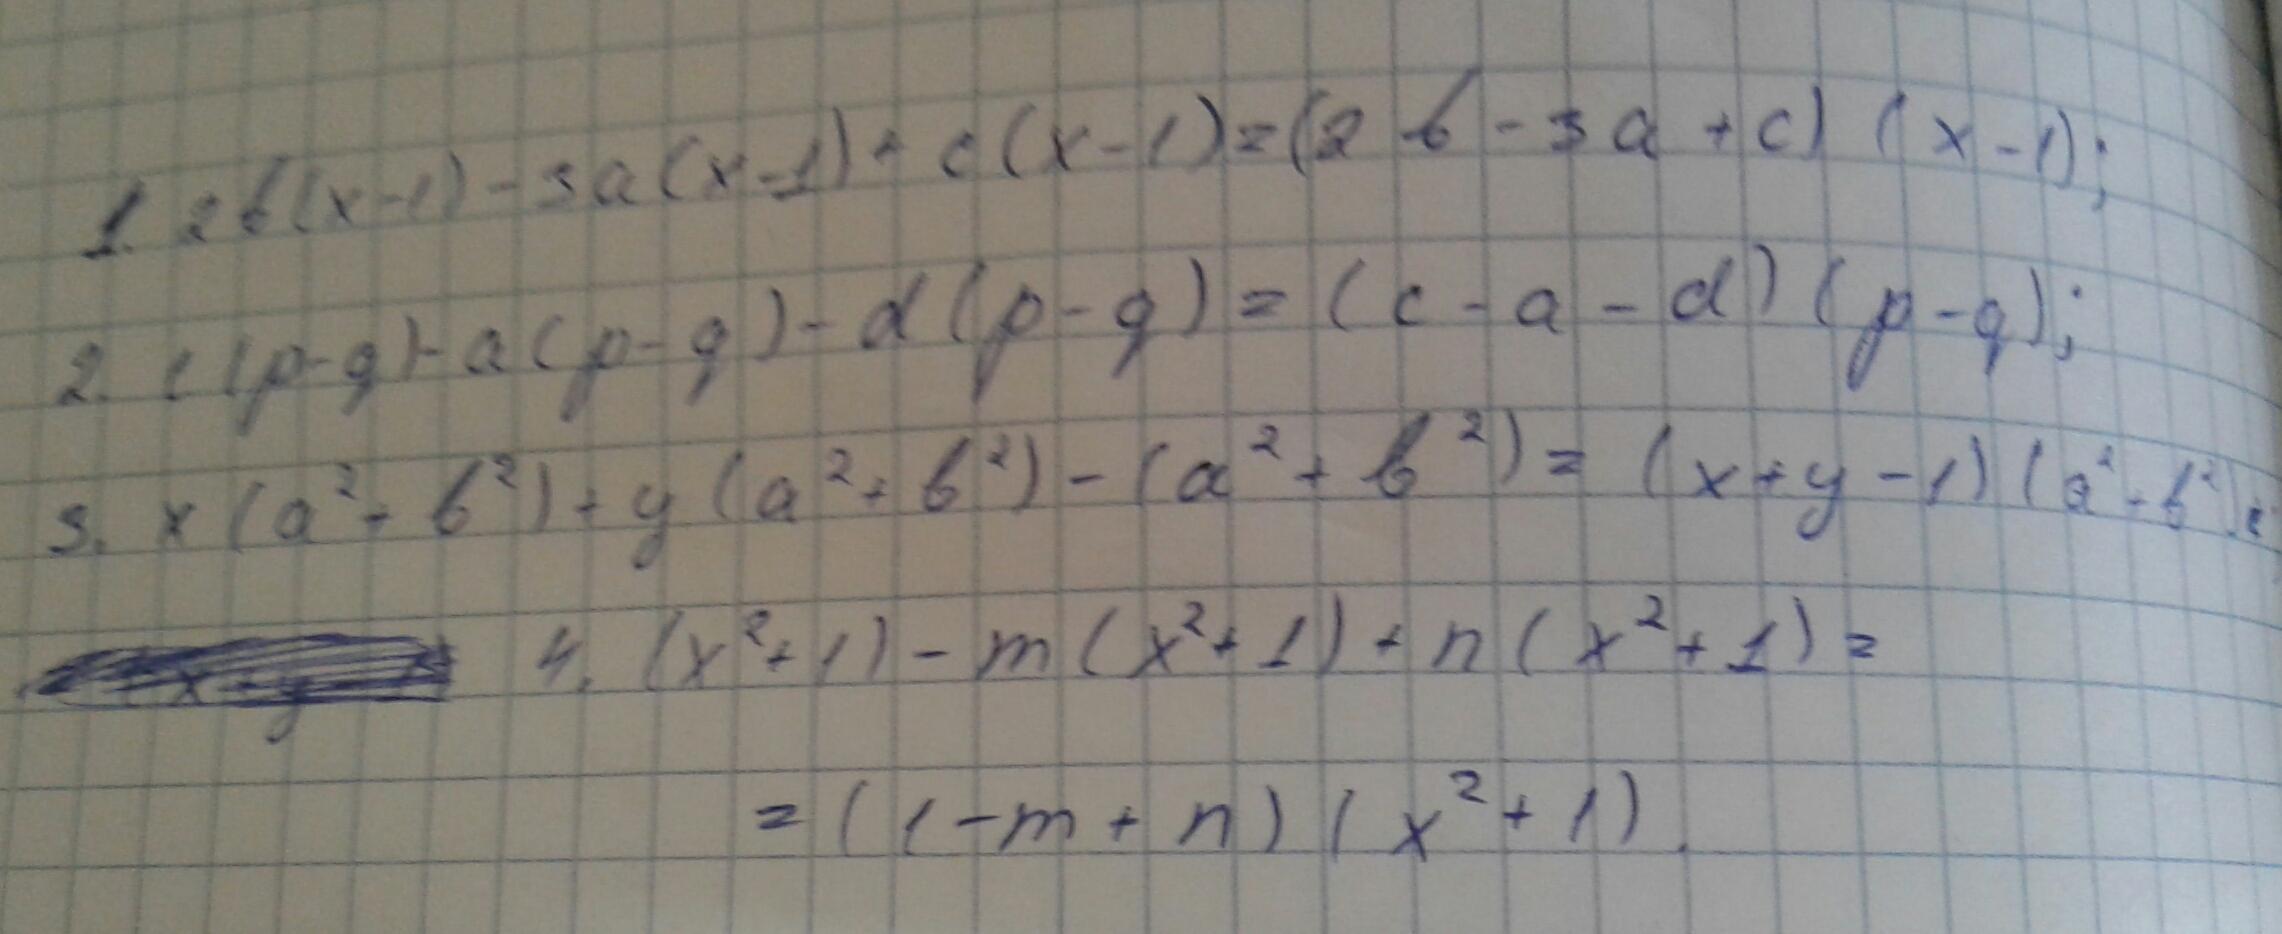 1. 2b(x-1)-3a(x-1)+c(x-1)=(2b-3a+c)(x-1);
2. c(p-q)-a(p-q)-d(p-q)=(c-a-d)(p-q);
3. x(a²+b²)+y(a²+b²)-(a²+b²)=(x+y-1)(a²+b²);
4. (x²+1)-m(x²+1)+n(x²+1)=
=(1-m+n)(x²+1).